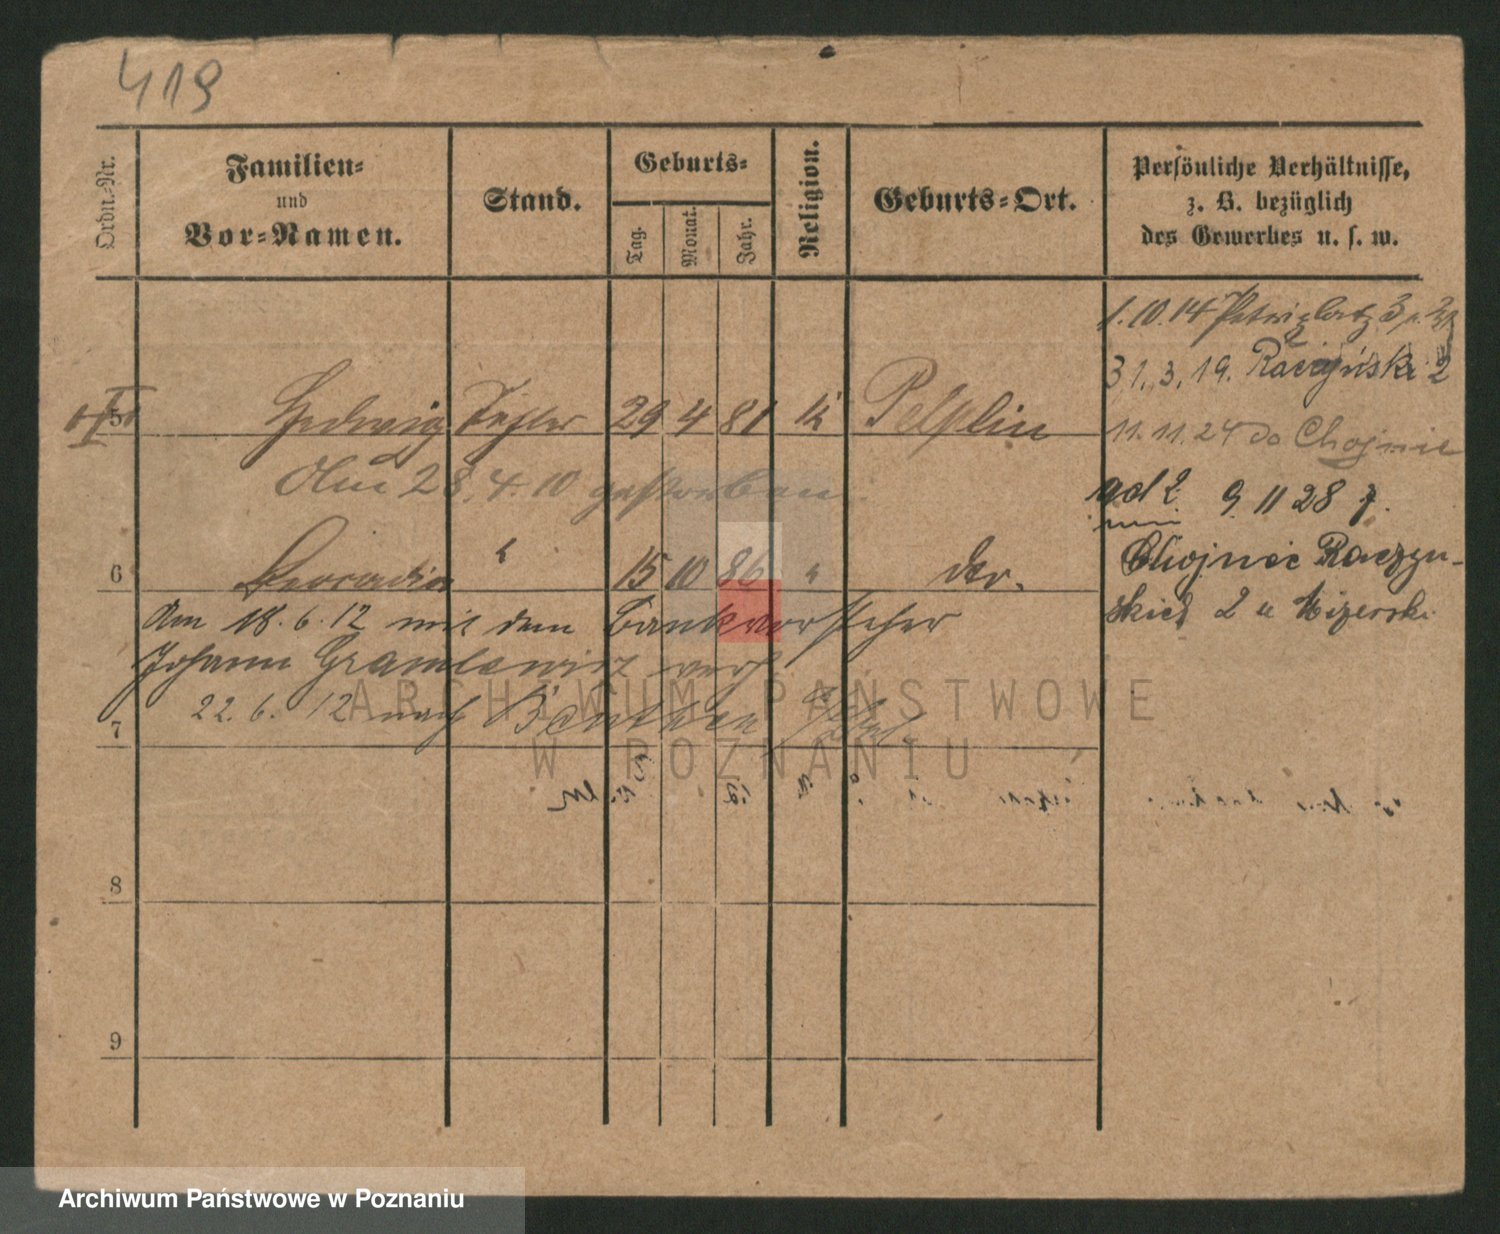 419
Ordn.-Nr.
Familien-
und
Vor-Namen.
Stand.
Geburts-
Tag.
Monat.
Jahr.
Religion.
Geburts-Ort.
Persönliche Verhältnisse,
z. B. bezüglich
des Gewerbes u. s. w.
1.10.14 Petriplatz 3
31.3.19. Raczyński 2
5 Hedwig Tochter 29 4 81 k Pelplin
11.11.24 do Chojnic
Am 28.4.10 gestorben
9 11 28 z.
6 Leocadia " 15 10 86 " do.
Chojnic Raczyń-
skich 2 u Mizerski
Am 18.6.12 mit dem Bankvorsteher
Johann verh.
7 22.6.12 nach Beuthen
8
9
ARCHIWUM PAŃSTWOWE
W POZNANIU
Archiwum Państwowe w Poznaniu